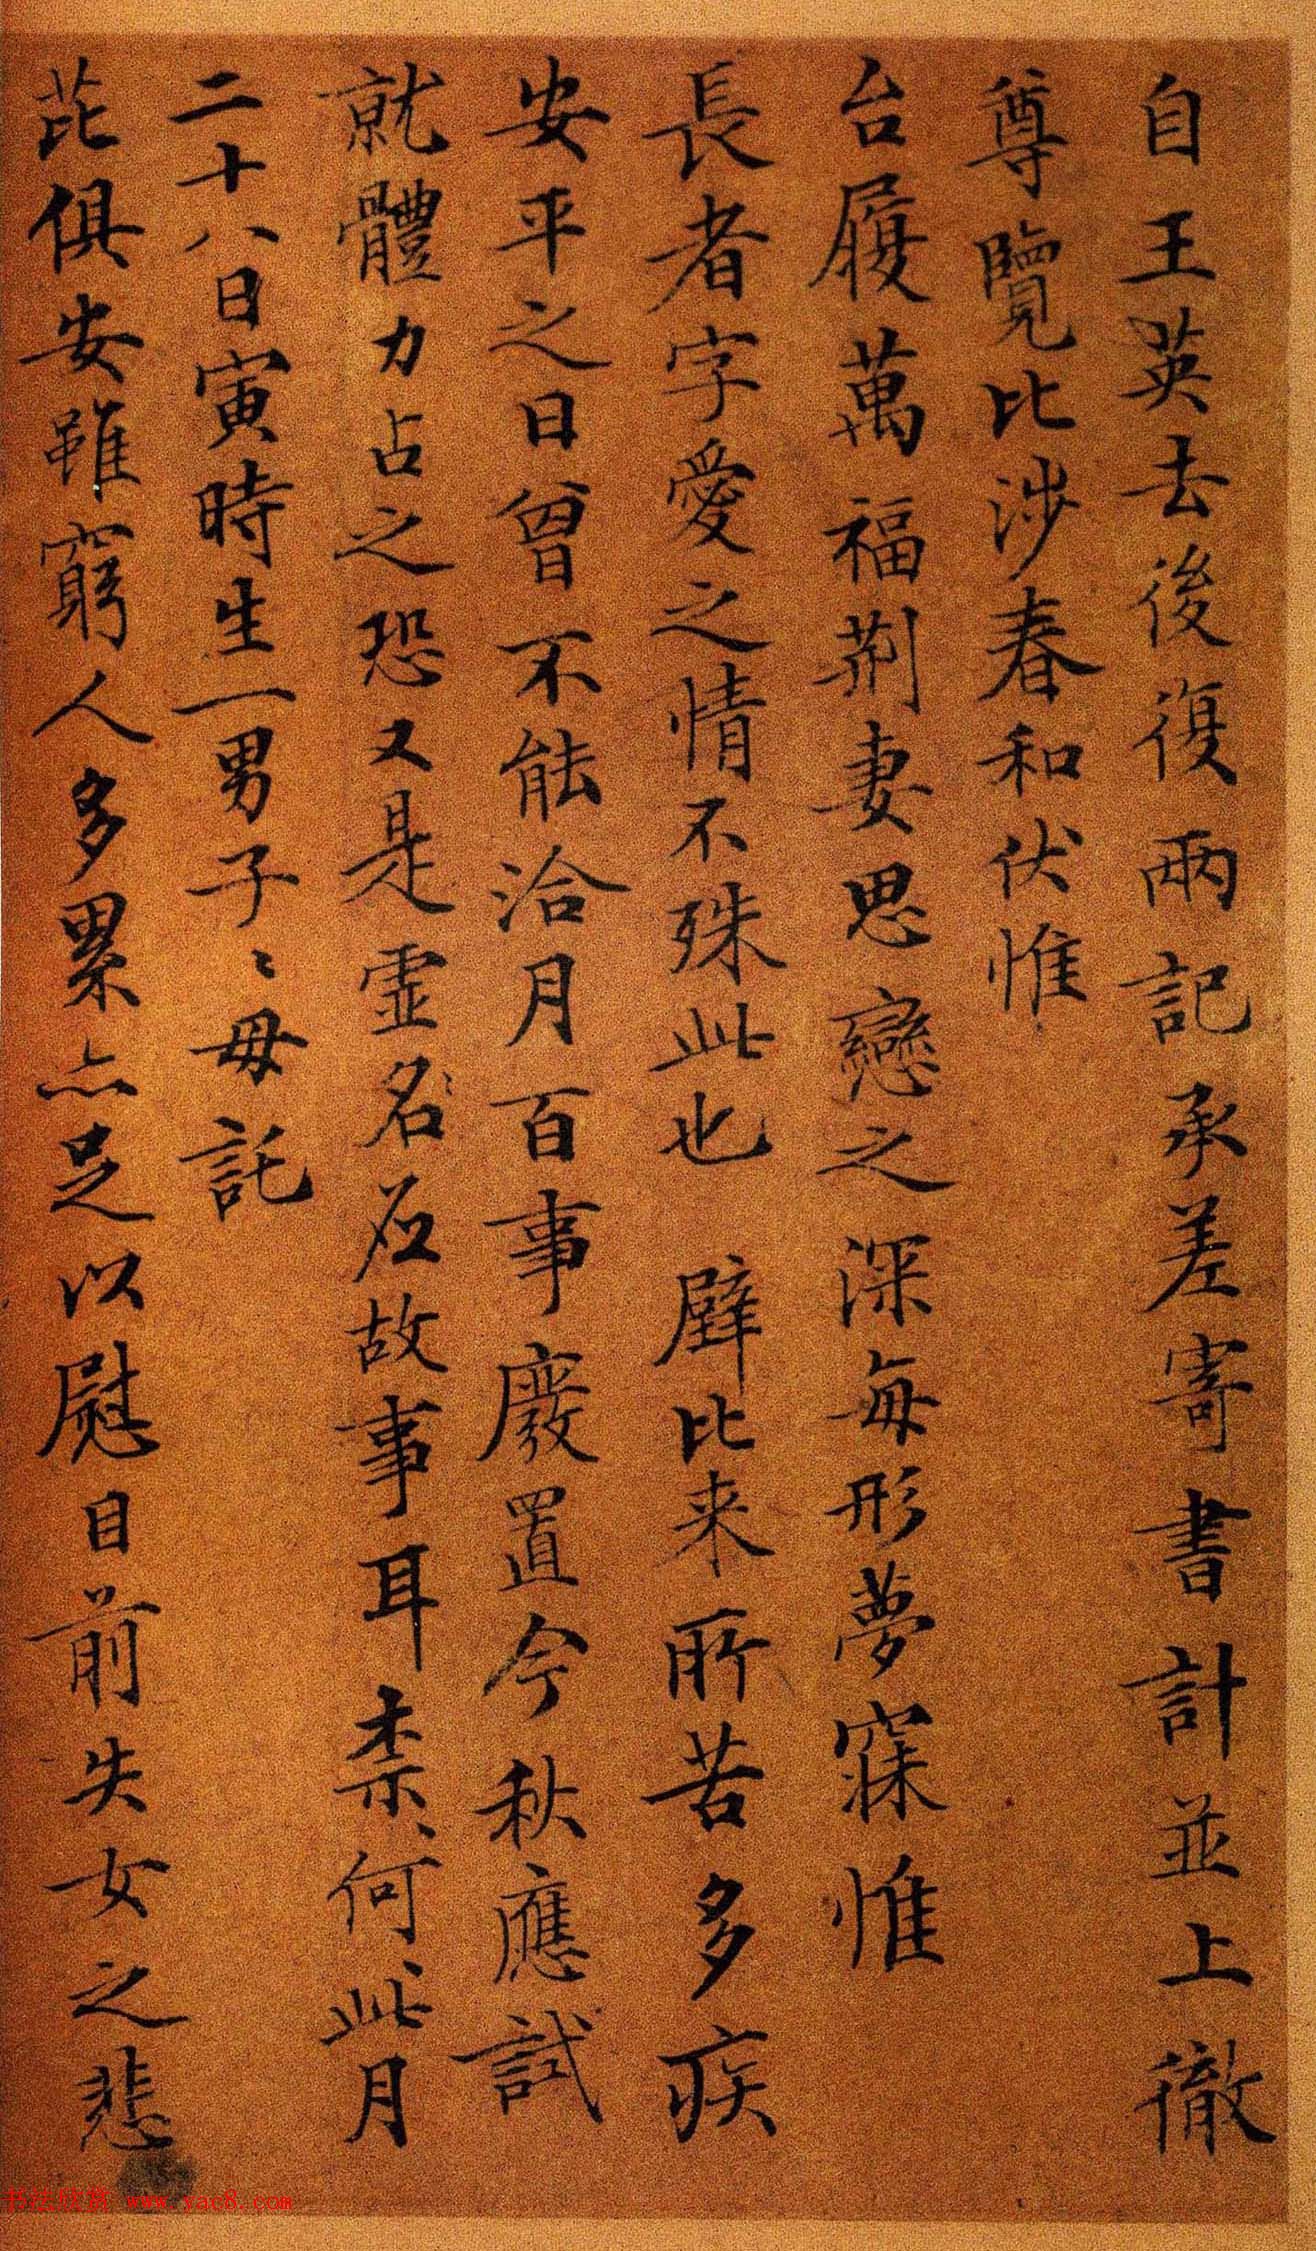 自王英去後復兩記承差寄書計並上徹
尊覽比涉春和伏惟
台履萬福荊妻思戀之深每形夢寐惟
長者字愛之情不殊此也 璧比来所苦多疾
安平之日曾不能洽月百事廢置今秋應試
就體力占之恐又是虛名應故事耳柰何柰何此月
二十八日寅時生一男子〻母託
芘俱安雖窮人多累亦足以慰目前失女之悲
书法欣赏 www.yac8.com